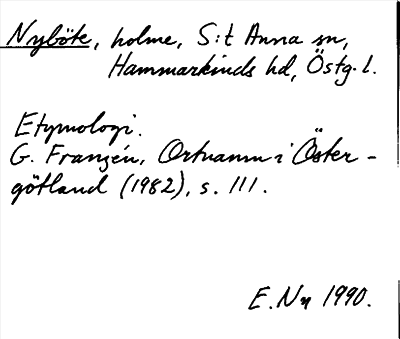 Nyböte, holme, S:t Anna sn,
Hammarkinds hd, Östg. l.
Etymologi.
G. Franzén, Ortnamn i Öster-
götland (1982), s. 111.
E. Nn 1990.